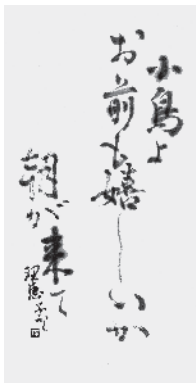 小鳥よ
お前も嬉しいか
朝が来て